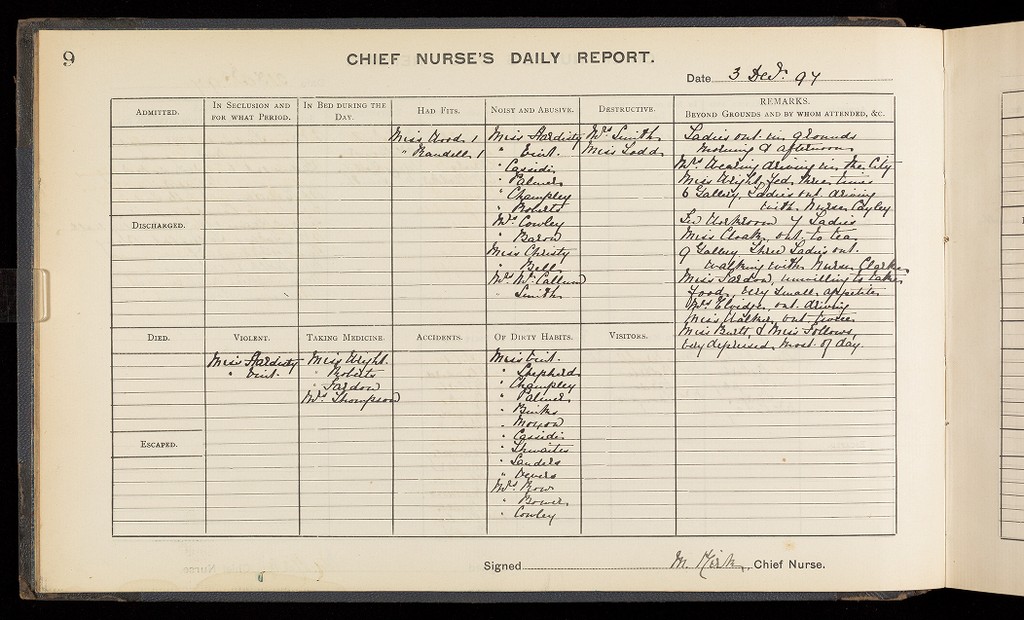 9
CHIEF NURSE'S DAILY REPORT.
Date 3 Dec. 97
ADMITTED.
IN SECLUSION AND FOR WHAT PERIOD.
IN BED DURING THE DAY.
HAD FITS.
Miss Wood 1
" Randell 1
NOISY AND ABUSIVE.
Miss Hardisty
" Vint.
" Cassidi
" Palmer
" Champley
" Roberts
Mrs Cowley
" Baron
Miss Christy
" Bell
Mrs McCallum
Smith
DESTRUCTIVE.
Mrs Smith
Miss Todd
REMARKS.
BEYOND GROUNDS AND BY WHOM ATTENDED, &C.
Ladies out in grounds
morning & afternoon
Mrs Wearing driving in the City
Miss Wright fed three times
6 Gallery, Ladies out driving
with Nurse Cayley
In Workroom 7 Ladies
Miss Cloak, out to tea
9 Gallery Three Ladies out
walking with Nurse Clarke
Miss Sardow, unwilling to take
food, very small appetite
Mrs Elvidge, out driving
Miss Walker, out twice
Miss Burtt, & Miss Follows,
very depressed, most of day.
DISCHARGED.
DIED.
VIOLENT.
Miss Hardisty
" Vint.
TAKING MEDICINE.
Miss Wright.
" Roberts
" Sardow
Mrs Thompson
ACCIDENTS.
OF DIRTY HABITS.
Miss Vint.
" Shepherd
" Champley
" Palmer
" Binks
" Moxon
" Cassidi
" Thwaites
" Sanders
" Vevers
Mrs Row
" Bower
" Cowley
VISITORS.
ESCAPED.
Signed M. Kirk, Chief Nurse.